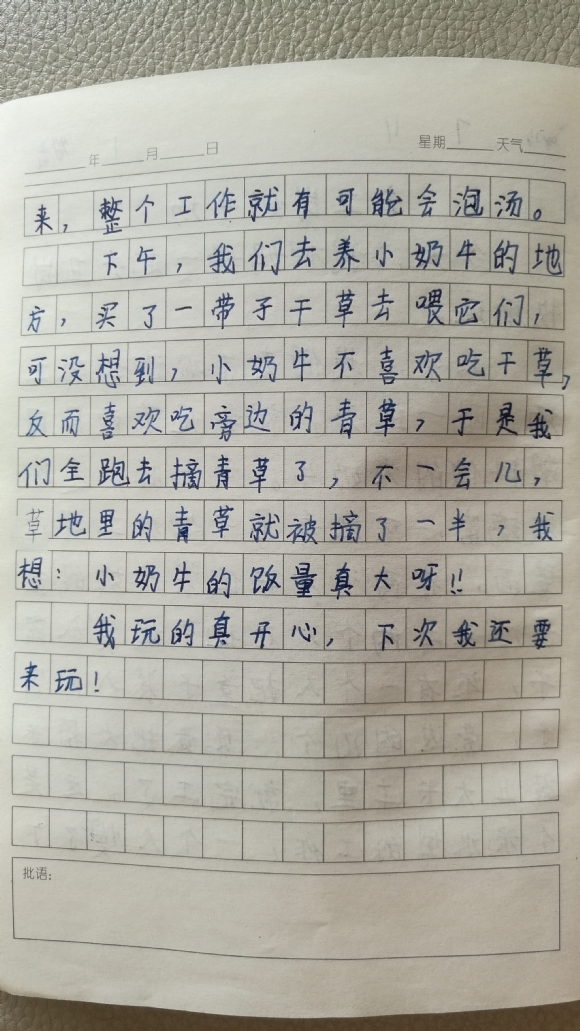 年 月 日 星期 天气
来，整个工作就有可能会泡汤。
下午，我们去养小奶牛的地
方，买了一带子干草去喂它们，
可没想到，小奶牛不喜欢吃干草，
反而喜欢吃旁边的青草，于是我
们全跑去摘青草了，不一会儿，
草地里的青草就被摘了一半，我
想：小奶牛的饭量真大呀!!
我玩的真开心，下次我还要
来玩！
批语：